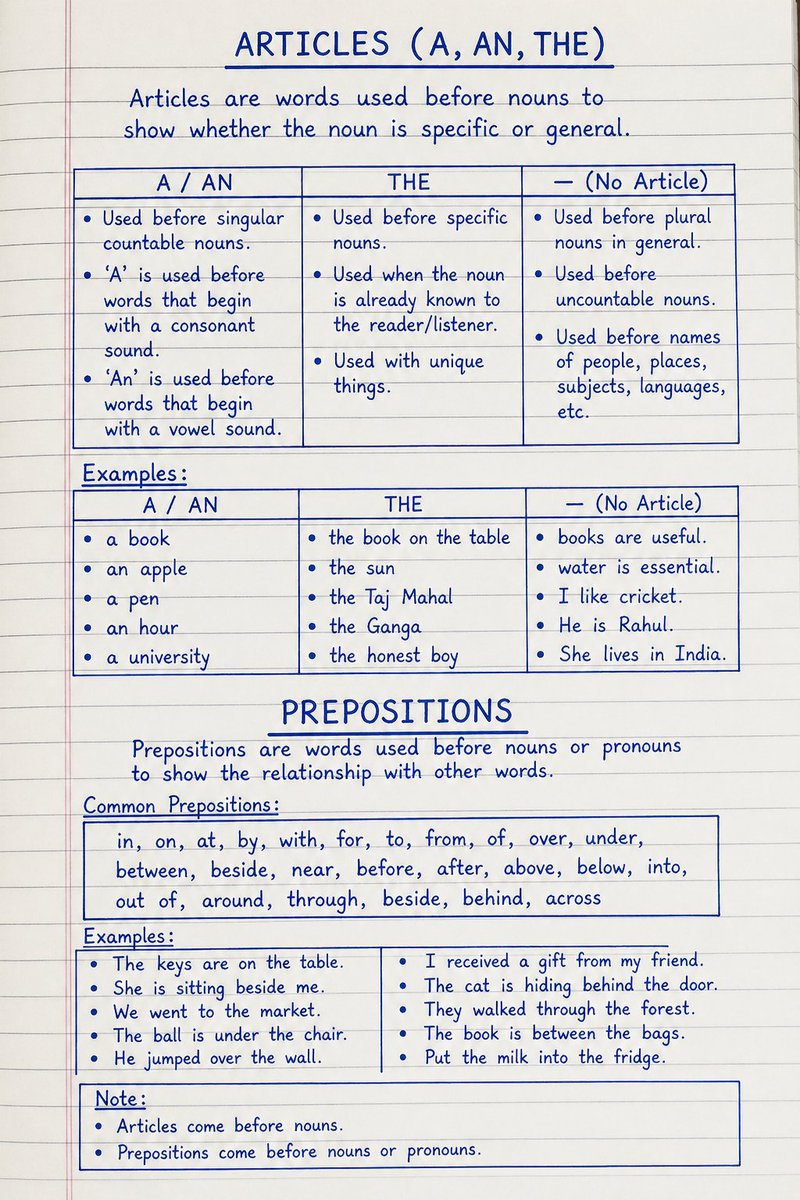 ARTICLES (A, AN, THE)
Articles are words used before nouns to
show whether the noun is specific or general.
A / AN
• Used before singular
countable nouns.
• ‘A’ is used before
words that begin
with a consonant
sound.
• ‘An’ is used before
words that begin
with a vowel sound.
THE
• Used before specific
nouns.
• Used when the noun
is already known to
the reader/listener.
• Used with unique
things.
— (No Article)
• Used before plural
nouns in general.
• Used before
uncountable nouns.
• Used before names
of people, places,
subjects, languages,
etc.
Examples:
A / AN
• a book
• an apple
• a pen
• an hour
• a university
THE
• the book on the table
• the sun
• the Taj Mahal
• the Ganga
• the honest boy
— (No Article)
• books are useful.
• water is essential.
• I like cricket.
• He is Rahul.
• She lives in India.
PREPOSITIONS
Prepositions are words used before nouns or pronouns
to show the relationship with other words.
Common Prepositions:
in, on, at, by, with, for, to, from, of, over, under,
between, beside, near, before, after, above, below, into,
out of, around, through, beside, behind, across
Examples:
• The keys are on the table.
• She is sitting beside me.
• We went to the market.
• The ball is under the chair.
• He jumped over the wall.
• I received a gift from my friend.
• The cat is hiding behind the door.
• They walked through the forest.
• The book is between the bags.
• Put the milk into the fridge.
Note:
• Articles come before nouns.
• Prepositions come before nouns or pronouns.